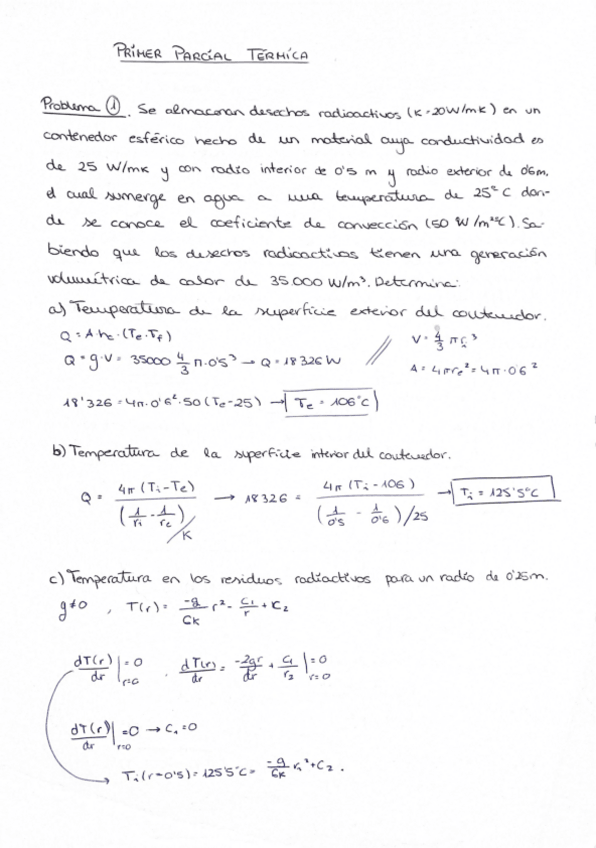 PRIMER PARCIAL TÉRMICA
Problema ①. Se almacenan desechos radioactivos (K=20W/mK) en un
contenedor esférico hecho de un material cuya conductividad es
de 25 W/mK y con radio interior de 0'5 m y radio exterior de 0'6m,
el cual sumerge en agua a una temperatura de 25°C don-
de se conoce el coeficiente de convección (50 W/m²°C). Sa-
biendo que los desechos radioactivos tienen una generación
volumétrica de calor de 35.000 W/m³. Determina:
a) Temperatura de la superficie exterior del contenedor.
Q = A·hc·(Te-Tf)
Q = g·V = 35000 4/3 π·0'5³ → Q = 18326 W // V = 4/3 π ri³
A = 4πre² = 4π·06²
18'326 = 4π·0'6²·50 (Te-25) → Te = 106°C
b) Temperatura de la superficie interior del contenedor.
Q = 4π (Ti-Te) / (1/ri - 1/re)/K → 18326 = 4π (Ti-106) / (1/0'5 - 1/0'6)/25 → Ti = 125'5°C
c) Temperatura en los residuos radiactivos para un radio de 0'25m.
g≠0 , T(r) = -g/6k r² - C1/r + C2
dT(r)/dr |r=0 = 0 . dT(r)/dr = -2gr/dr + C1/r2 |r=0 = 0
dT(r)/dr |r=0 = 0 → C1 = 0
→ Ti (r=0'5) = 125'5°C = -g/6k ri² + C2 .